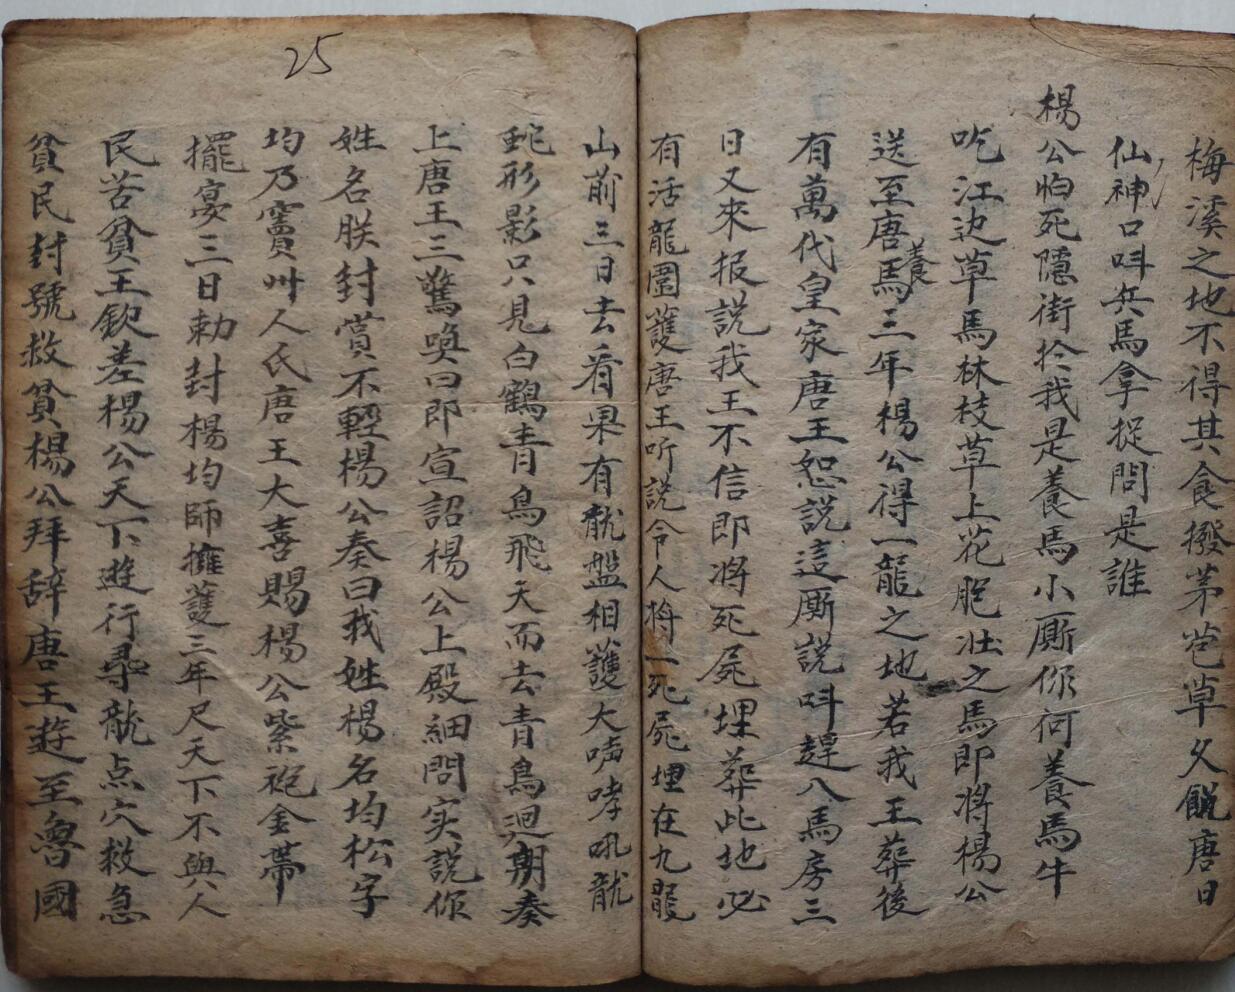 梅溪之地不得其食撥茅芭草义餽唐日
仙神口呌兵馬拿捉問是誰
楊公怕死隱街扵我是養馬小厮你何養馬牛
吃江边草馬林枝草上花肥壯之馬即将楊公
送至唐養馬三年楊公得一龍之地若我王葬後
有萬代皇家唐王恕説這厮説呌趕八馬房三
日又來报説我王不信即将死屍埋葬此地必
有活龍圍護唐王听説令人将一死屍埋在九龍
山前三日去看果有龍盤相護大吽哮吼龍
蛇形影只見白鶴青鳥飛天而去青鳥迴朝奏
上唐王三驚喚曰即宣詔楊公上殿細問实説你
姓名朕封賞不輕楊公奏曰我姓楊名均松字
均乃竇州人氏唐王大喜賜楊公紫袍金帶
擺宴三日勅封楊均師擁護三年尺天下不與人
民苦貧王欽差楊公天下遊行尋龍点穴救急
貧民封號救貧楊公拜辞唐王遊至魯國
25